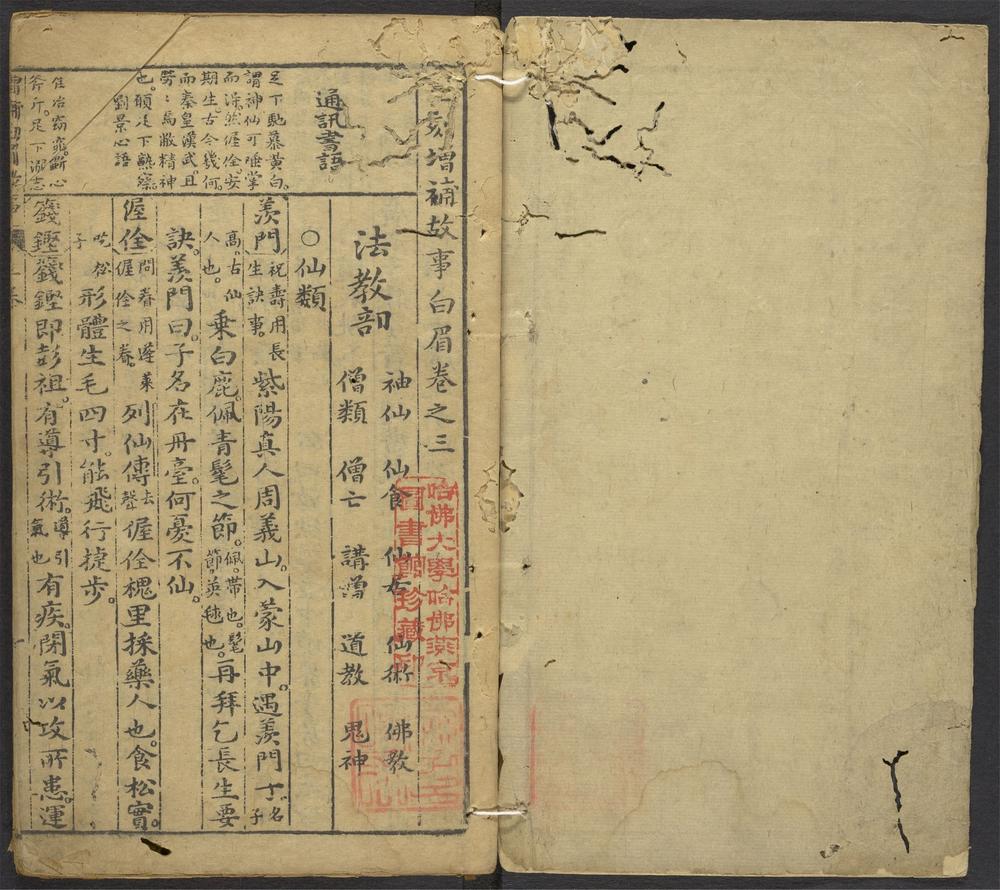 刻增補故事白眉卷之三
法教部
仙類 仙食 仙術 佛教
僧類 僧亡 講增 道教 鬼神
○仙類
羨門 祝壽用長生訣事。 紫陽真人周義山。入蒙山中。遇羨門子名高。古仙人也。
乘白鹿。佩青髦之節。佩。帶也。髦節。英毬也。再拜乞長生要
訣。羨門曰。子名在丹臺。何憂不仙。
偓佺 問眷用蓬萊偓佺之眷。 列仙傳去聲偓佺槐里採藥人也。食松實。
吃松子 形體生毛四寸。能飛行捷步。
籛鏗 籛鏗即彭祖。有導引術。導引氣也 有疾。閉氣以攻所患。運
通訊書語
足下勤慕黃白。
謂神仙可唾掌
而深。然偓佺安
期生。古今幾何。
而秦皇漢武。且
勞勞焉敝精神
也。願足下熟察。
劉景心語
斧斤。足下溺志
哈佛大學哈佛燕京
圖書館珍藏印